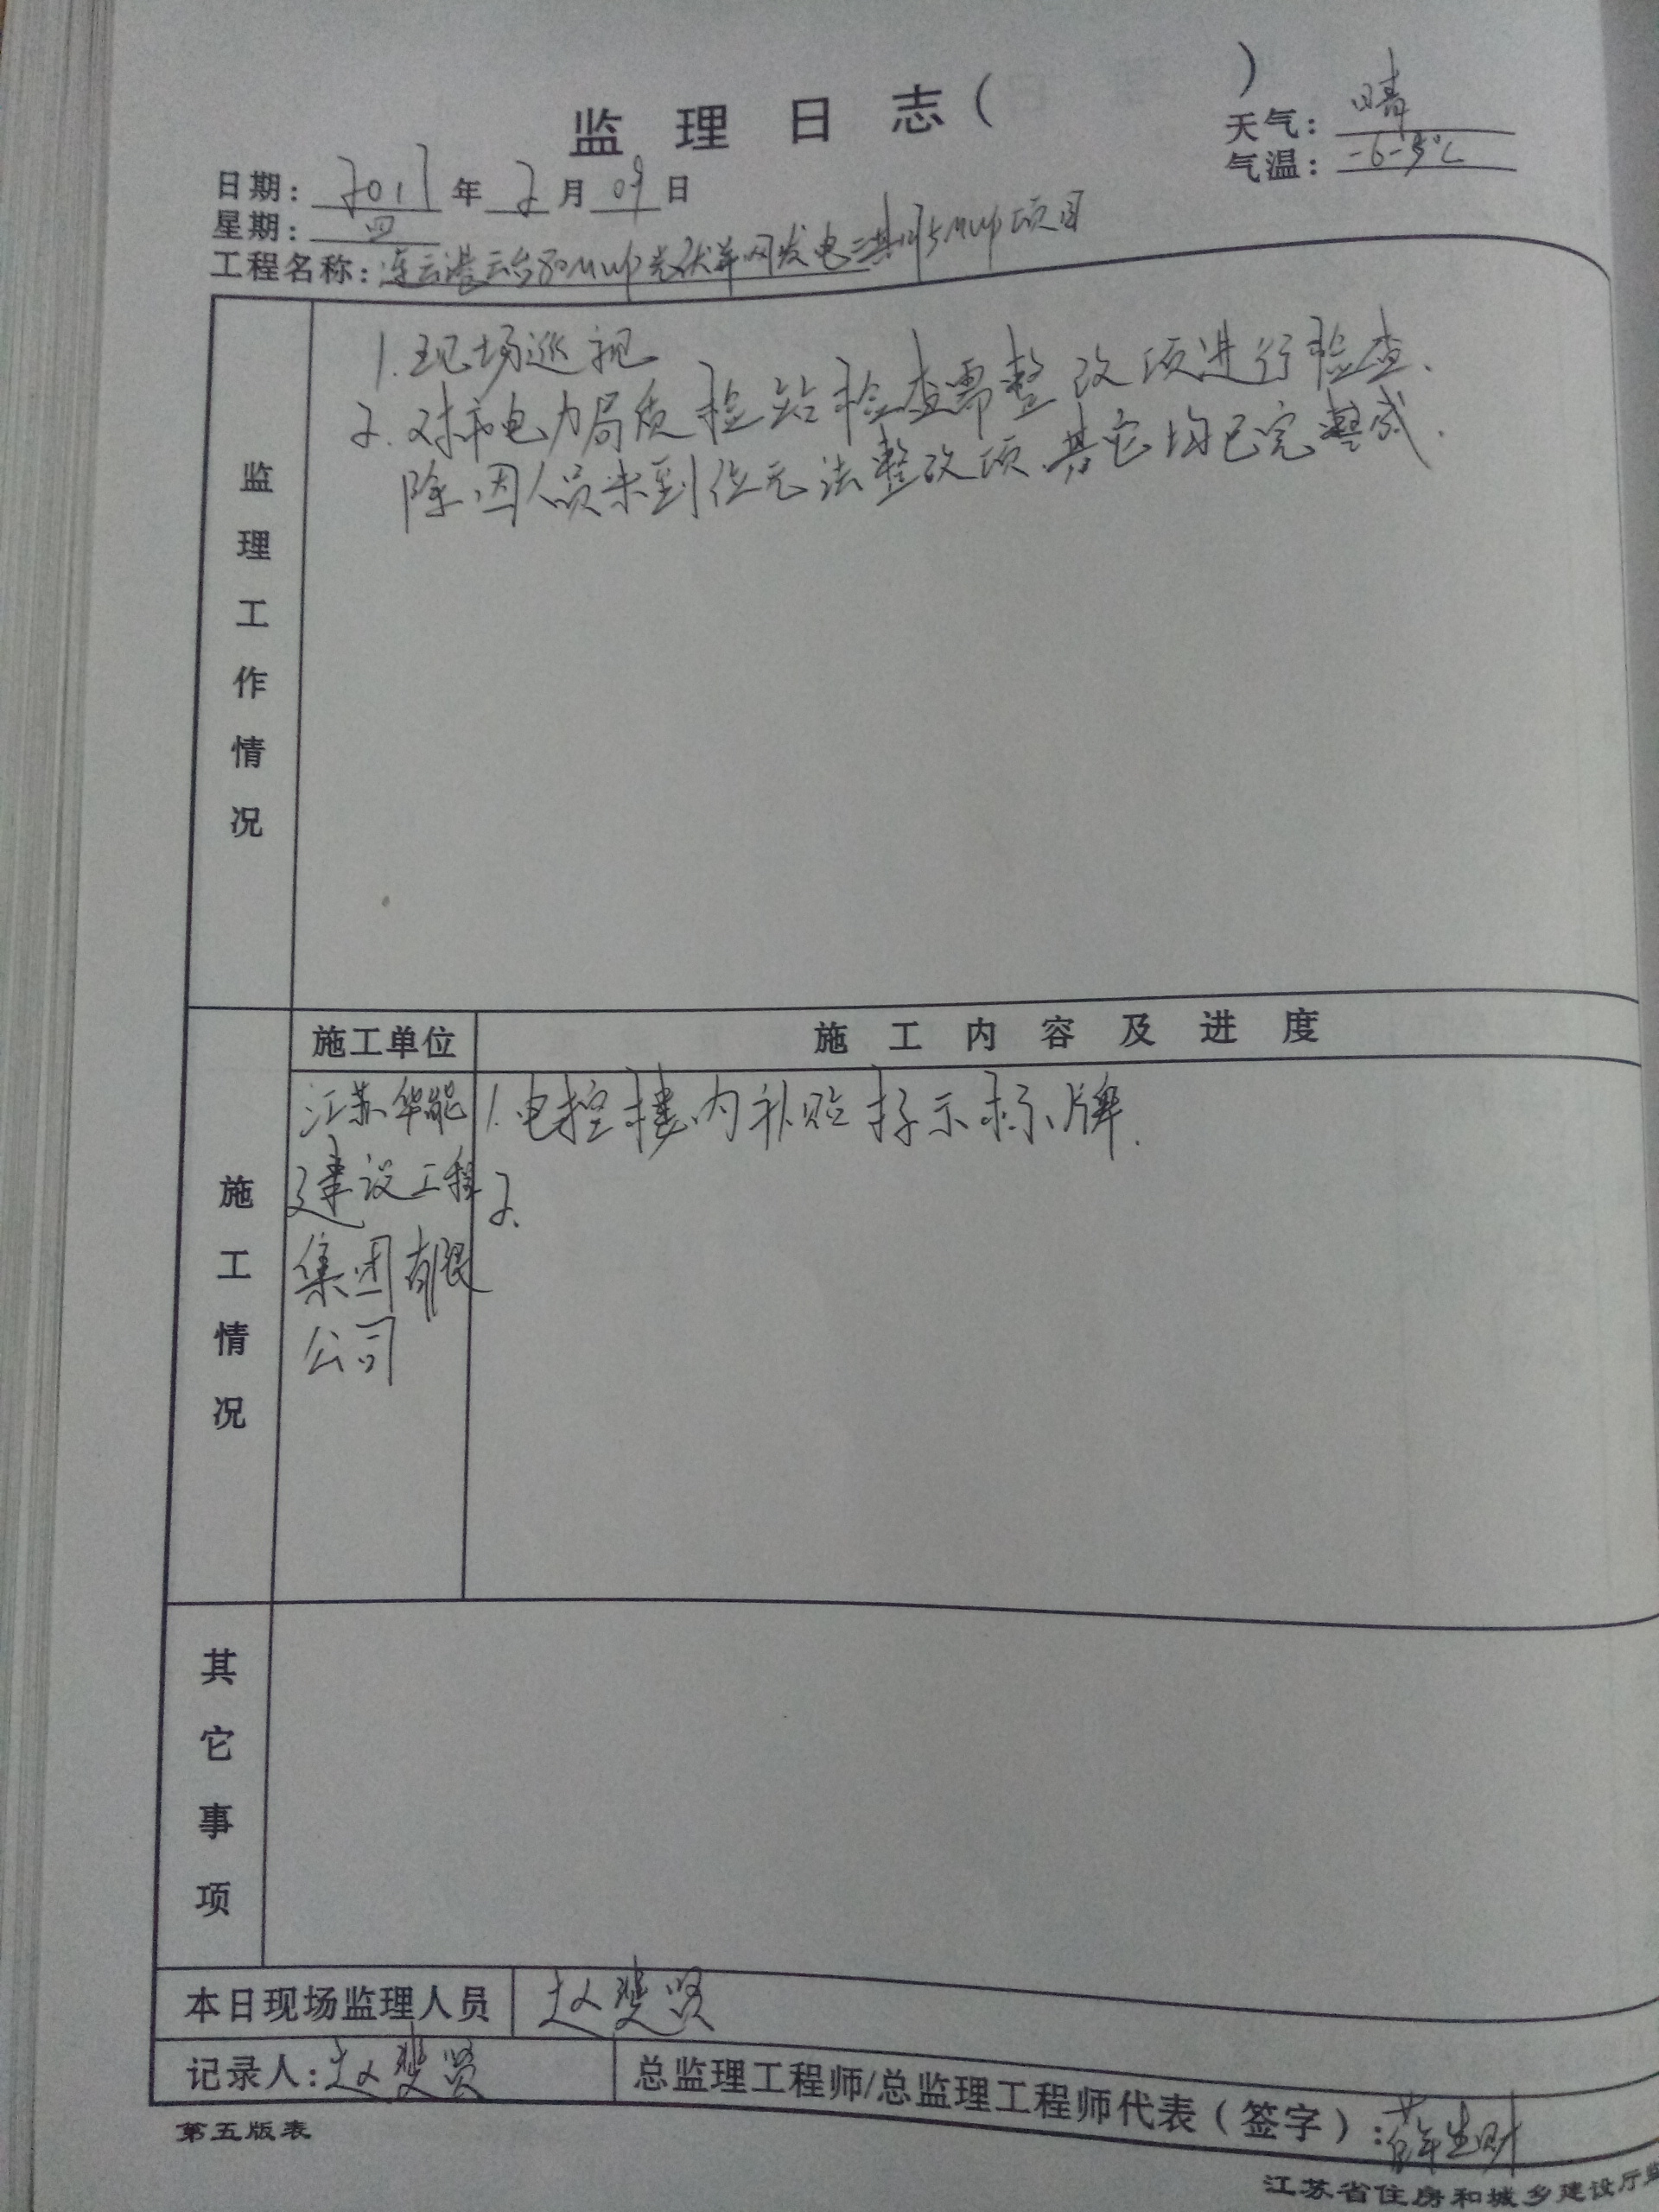 监理日志（ ）
天气：晴
气温：-6-5℃
日期：2017年2月09日
星期：四
工程名称：连云港云台80MWp光伏并网发电二期35MWp项目
监理工作情况
1.现场巡视
2.对市电力局质检站检查需整改项进行检查.
除因人员未到位无法整改项.其它均已完整成.
施工情况
施工单位
施工内容及进度
江苏华能
建设工程
集团有限
公司
1.电控楼内补贴指示标牌.
2.
其它事项
本日现场监理人员 赵斐贤
记录人：赵斐贤
总监理工程师/总监理工程师代表（签字）：薛生财
第五版表
江苏省住房和城乡建设厅监